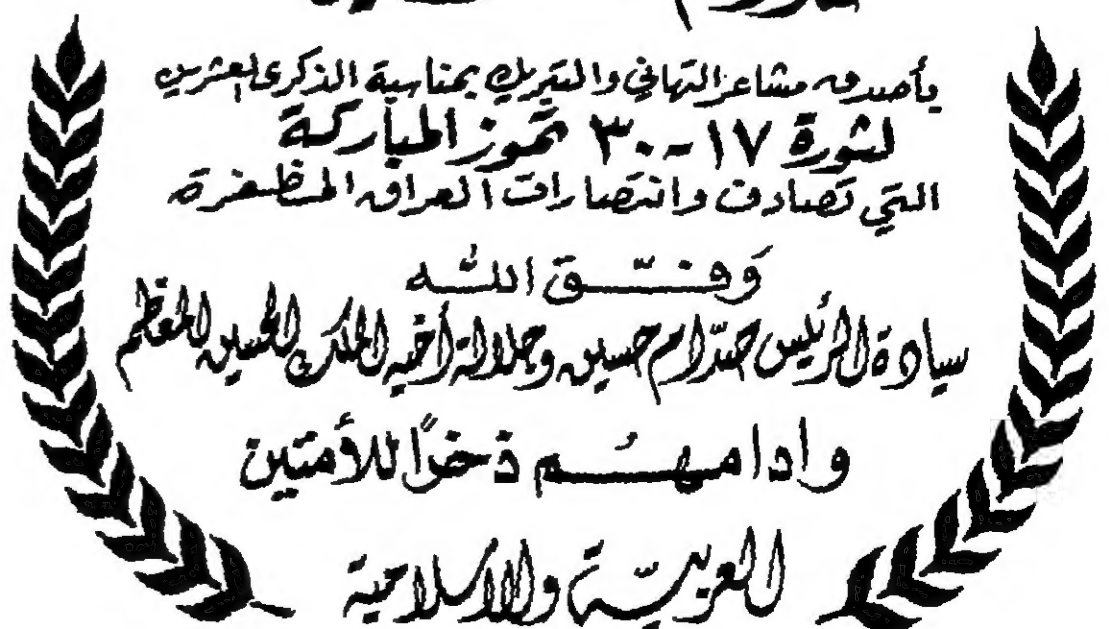 بأصدق مشاعر التهاني والتبريك بمناسبة الذكرى العشرين
لثورة ١٧-٣٠ تموز المباركة
التي تصادف وانتصارات العراق المظفرة
وَفّق اللّه
سيادة الرئيس صدّام حسين وجلالة أخيه الملك الحسين المعظم
وادامهُم ذخرًا للأمتين
العربيّة والاسلامية